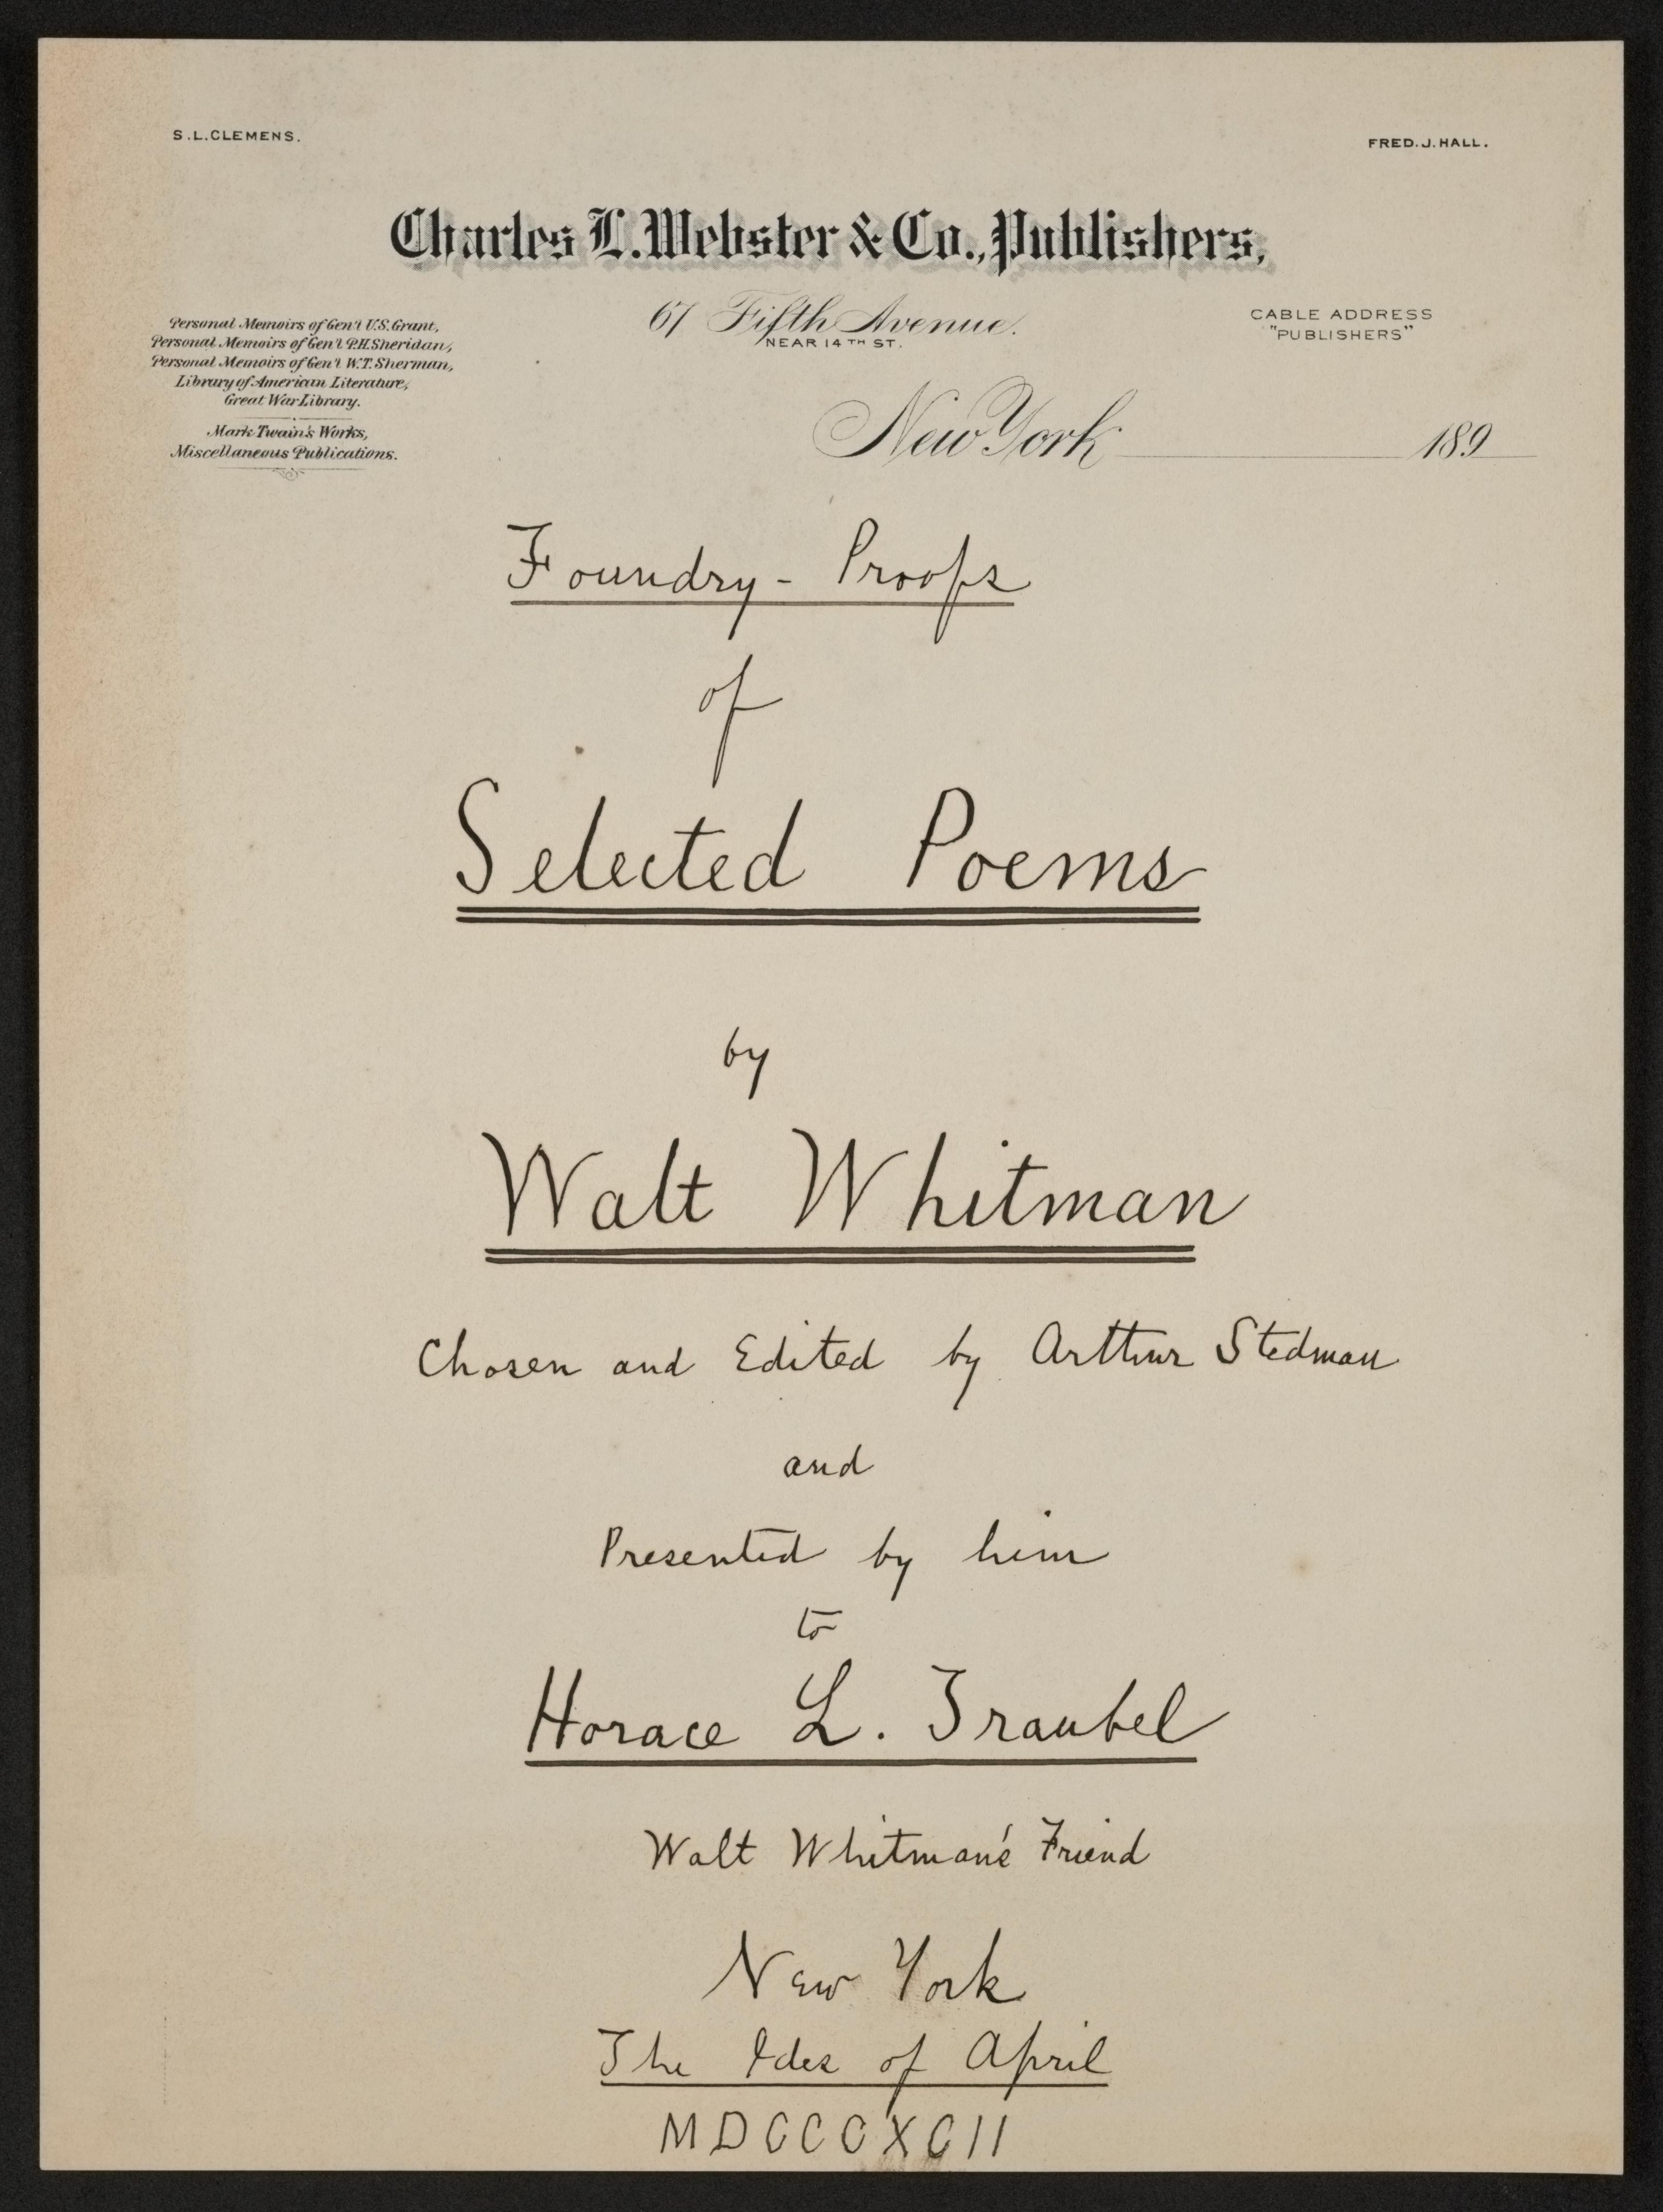 S.L.CLEMENS.
FRED.J.HALL.
Charles L.Webster & Co., Publishers,
67 Fifth Avenue.
NEAR 14TH ST.
CABLE ADDRESS
"PUBLISHERS"
Personal Memoirs of Gen'l U.S.Grant,
Personal Memoirs of Gen'l P.H.Sheridan,
Personal Memoirs of Gen'l W.T.Sherman,
Library of American Literature,
Great War Library.
Mark Twain's Works,
Miscellaneous Publications.
New York 189
Foundry - Proofs
of
Selected Poems
by
Walt Whitman
Chosen and Edited by Arthur Stedman
and
Presented by him
to
Horace L. Traubel
Walt Whitman's Friend
New York
The Ides of April
MDCCCXCII